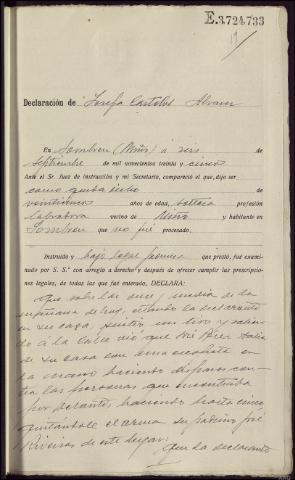 E.3.724.733
19
Declaración de Josefa Castelos Alvarez
En Sombreu (Miño) á seis de
septiembre de mil novecientos treinta y cinco
Ante el Sr. Juez de instrucción y mi Secretario, compareció el que, dijo ser
como queda dicho de
veintidos años de edad, soltera profesión
labradora vecino de Miño y habitante en
Sombreu que no fué procesado.
Instruido y bajo legal promesa que prestó, fué examinado
por S. S.ª con arreglo a derecho y después de ofrecer cumplir las prescripciones
legales, de todas las que fué enterado, DECLARA:
Que sobre las once y media de la
mañana de hoy, estando la declarante
en su casa, sintió un tiro y saliendo
á la calle vió que José Pérez salía
de su casa con una escopeta en
la mano haciendo disparos contra
las personas que encontraba
por delante, haciendo hasta cinco
quitándole el arma su padrino José
de este lugar.
Que la declarante